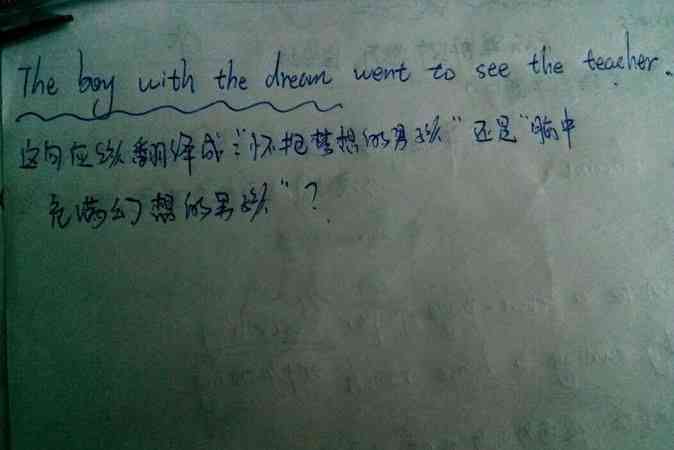 The boy with the dream went to see the teacher.
这句应该翻译成:"怀抱梦想的男孩"还是"脑中
充满幻想的男孩"?